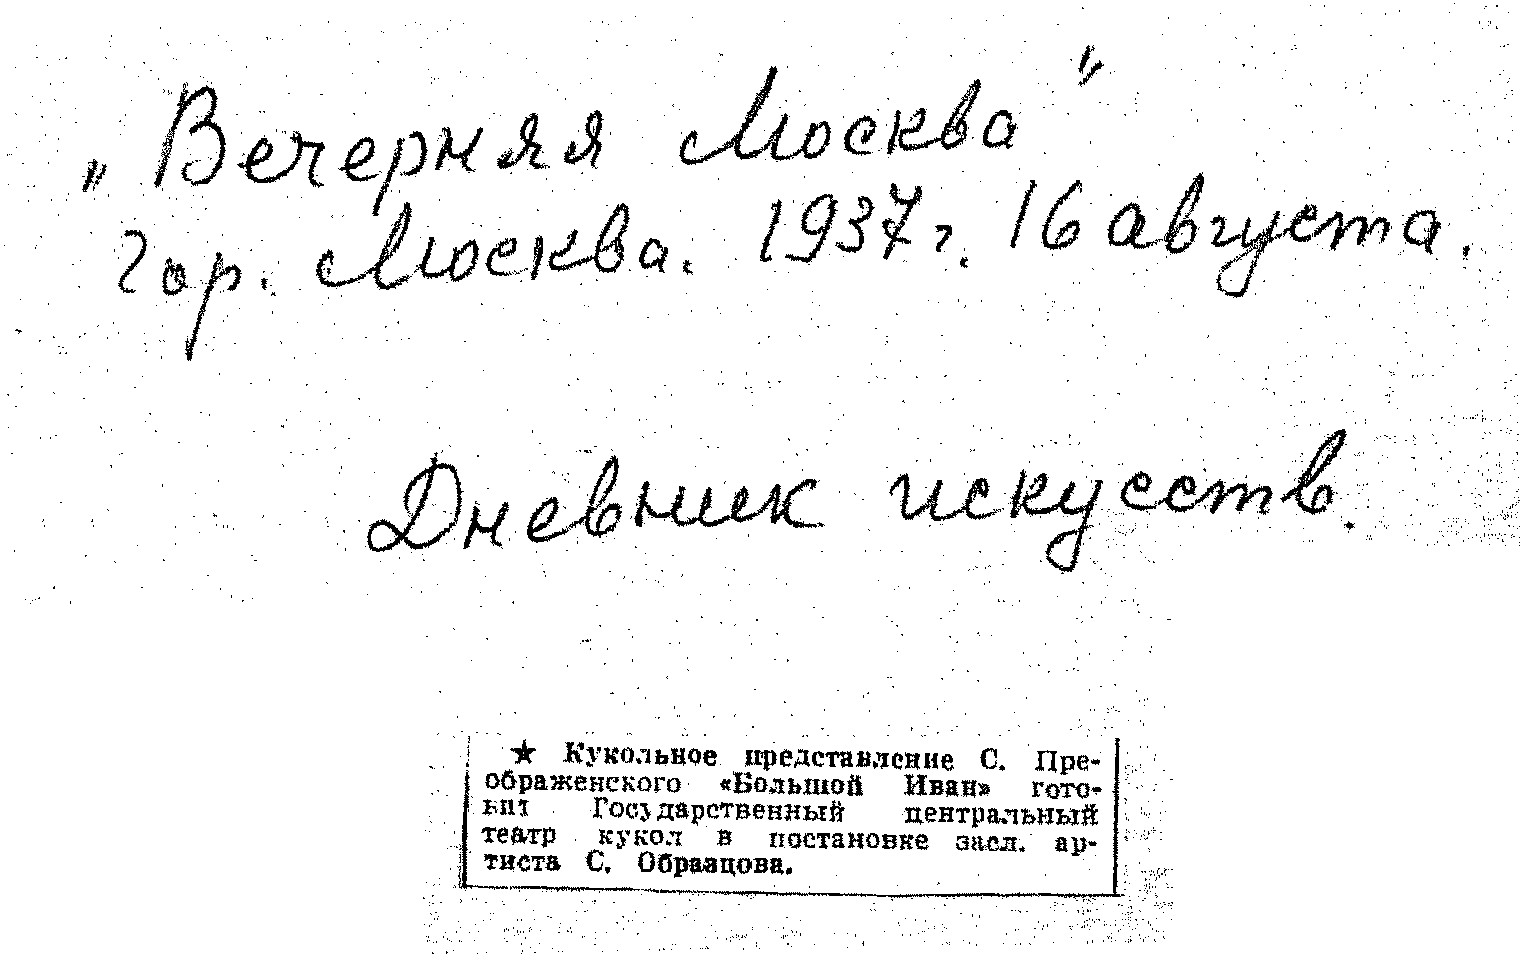 „Вечерняя Москва”
гор. Москва. 1937 г. 16 августа.
Дневник искусств.
★ Кукольное представление С. Пре-
ображенского «Большой Иван» гото-
вит Государственный центральный
театр кукол в постановке засл. ар-
тиста С. Образцова.